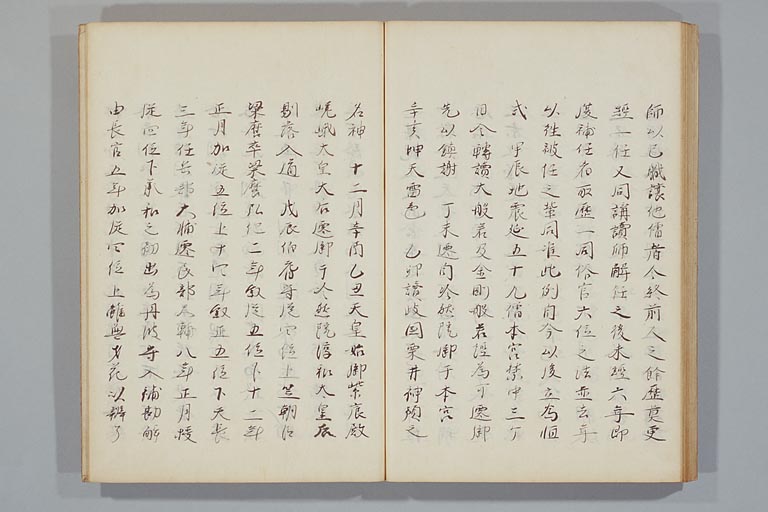 師以己職讓他僧者令終前人之餘歷莫更
經一任又同講讀師解任之後未經六年即
復補任者取歷一同俗官六位之法並去年
以往被任之輩同准此例自今以後立為恒
式　甲辰地震延五十九僧本宮禁中三ケ
日令轉讀大般若及金剛般若經為可遷御
先以鎮謝　丁未遷自冷然院御于本宮
辛亥坤天雷色　乙卯讚岐國粟井神預之
名神　十二月辛酉乙丑天皇始御紫宸殿
嵯峨太皇大后遷御于冷然院淳和太皇后
剔落入道　戊辰伯耆守從四位上笠朝臣
梁麿卒梁麿弘仁二年叙從五位下十二年
正月加從五位上十四年叙正五位下天長
三年任兵部大輔遷民部大輔八年正月授
從四位下承和之初出為丹波守入補勘解
由長官五年加從四位上雖無才花以幹了